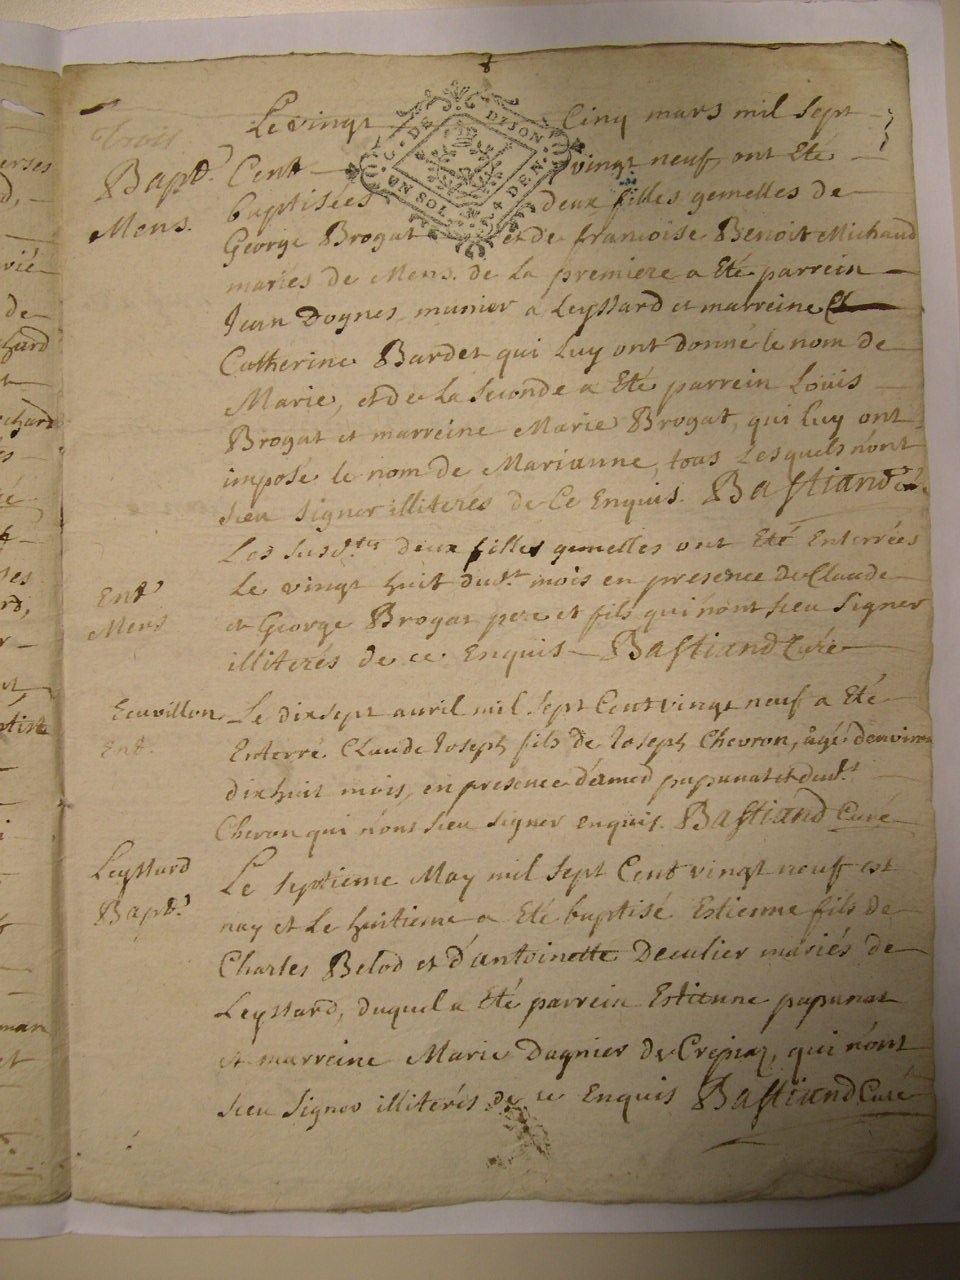 Trois
Bapt.
Mens.
G. DE DIJON
UN SOL 4 DEN.
Le vingt Cinq mars mil sept
Cent vingt neuf ont Eté
baptisées deux filles gemelles de
George Brogat et de francoise Benoit Michaud
mariés de Mens. de La premiere a Eté parrein
Jean Dognes munier a Leyssard et marreine
Catherine Bardet qui Luy ont donné le nom de
Marie, et de La seconde a Eté parrein Loüis
Brogat et marreine Marie Brogat, qui Luy ont
imposé le nom de Marianne, tous Lesquels n'ont
sceu signer illiterés de Ce Enquis. Bastiand
Ent.
Mens
Les susd.tes deux filles gemelles ont Eté Enterrées
Le vingt huit dud.t mois en presence de Claude
et George Brogat pere et fils qui n'ont sceu signer
illiterés de ce Enquis Bastiand Curé
Ecuvillon
Ent.
Le dix sept avril mil sept Cent vingt neuf a Eté
Enterré Claude Joseph fils de Joseph Chevron, âgé d'environ
dix huit mois, en presence d'amed papunat et dud.t
Chevron qui n'ont sceu signer enquis. Bastiand Curé
Leyssard
Bapt.
Le septieme May mil sept Cent vingt neuf est
nay et Le huitieme a Eté baptisé Estienne fils de
Charles Belod et d'antoinette Deculier mariés de
Leyssard, duquel a Eté parrein Estienne papunat
et marreine Marie Dagnier de Crepiaz, qui n'ont
sceu signer illiterés de ce Enquis Bastiand Curé